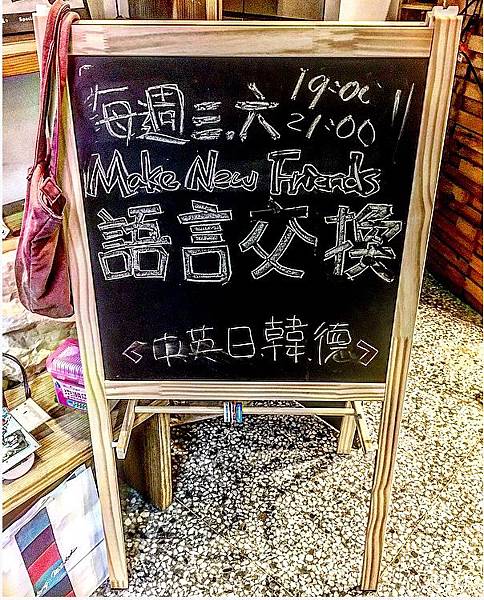 每週三.六 19:00
21:00
Make New Friends
語言交換
<中英日韓德>